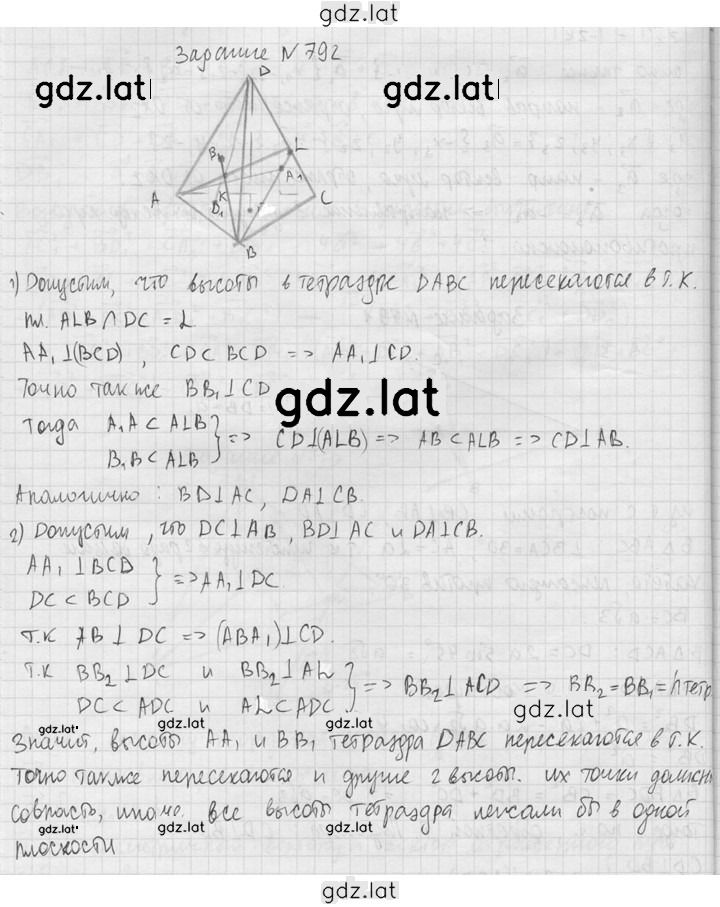 gdz.lat
Задание N 792
gdz.lat
gdz.lat
D
B₁
L
A₁
A
K
D₁
C
B
1) Допустим, что высоты в тетраэдре DABC пересекаются в т. К.
пл. ALB ∩ DC = L
AA₁⊥(BCD), CD⊂BCD => AA₁⊥CD.
Точно так же BB₁⊥CD
gdz.lat
Тогда A₁A⊂ALB
B₁B⊂ALB } => CD⊥(ALB) => AB⊂ALB => CD⊥AB.
Аналогично: BD⊥AC, DA⊥CB.
2) Допустим, что DC⊥AB, BD⊥AC и DA⊥CB.
AA₁⊥BCD
DC⊂BCD } => AA₁⊥DC.
Т.к AB⊥DC => (ABA₁)⊥CD.
Т.к BB₂⊥DC и BB₂⊥AL
DC⊂ADC и AL⊂ADC } => BB₂⊥ACD => BB₂=BB₁=h тетр.
gdz.lat
gdz.lat
Значит, высоты AA₁ и BB₁ тетраэдра DABC пересекаются в т. К.
Точно также пересекаются и другие 2 высоты. их точки должны
совпасть, иначе все высоты тетраэдра лежали бы в одной
gdz.lat
gdz.lat
gdz.lat
плоскости
gdz.lat